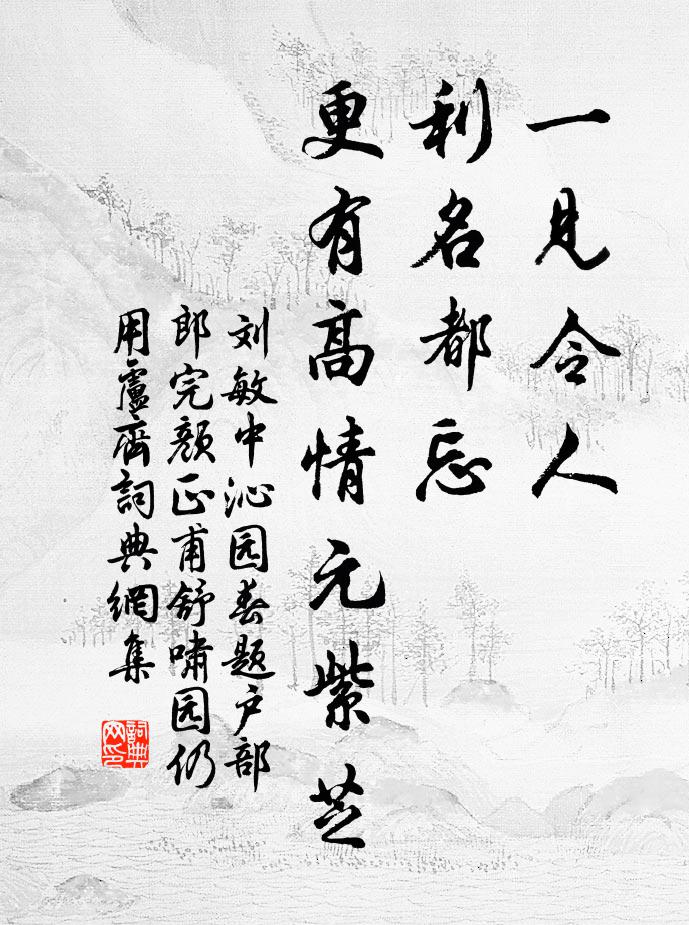 一见令人
利名都忘
更有高情元紫芝
刘敏中沁园春题户部
郎完颜正甫舒啸园仍
用廬齋詞典網集
詞典网印